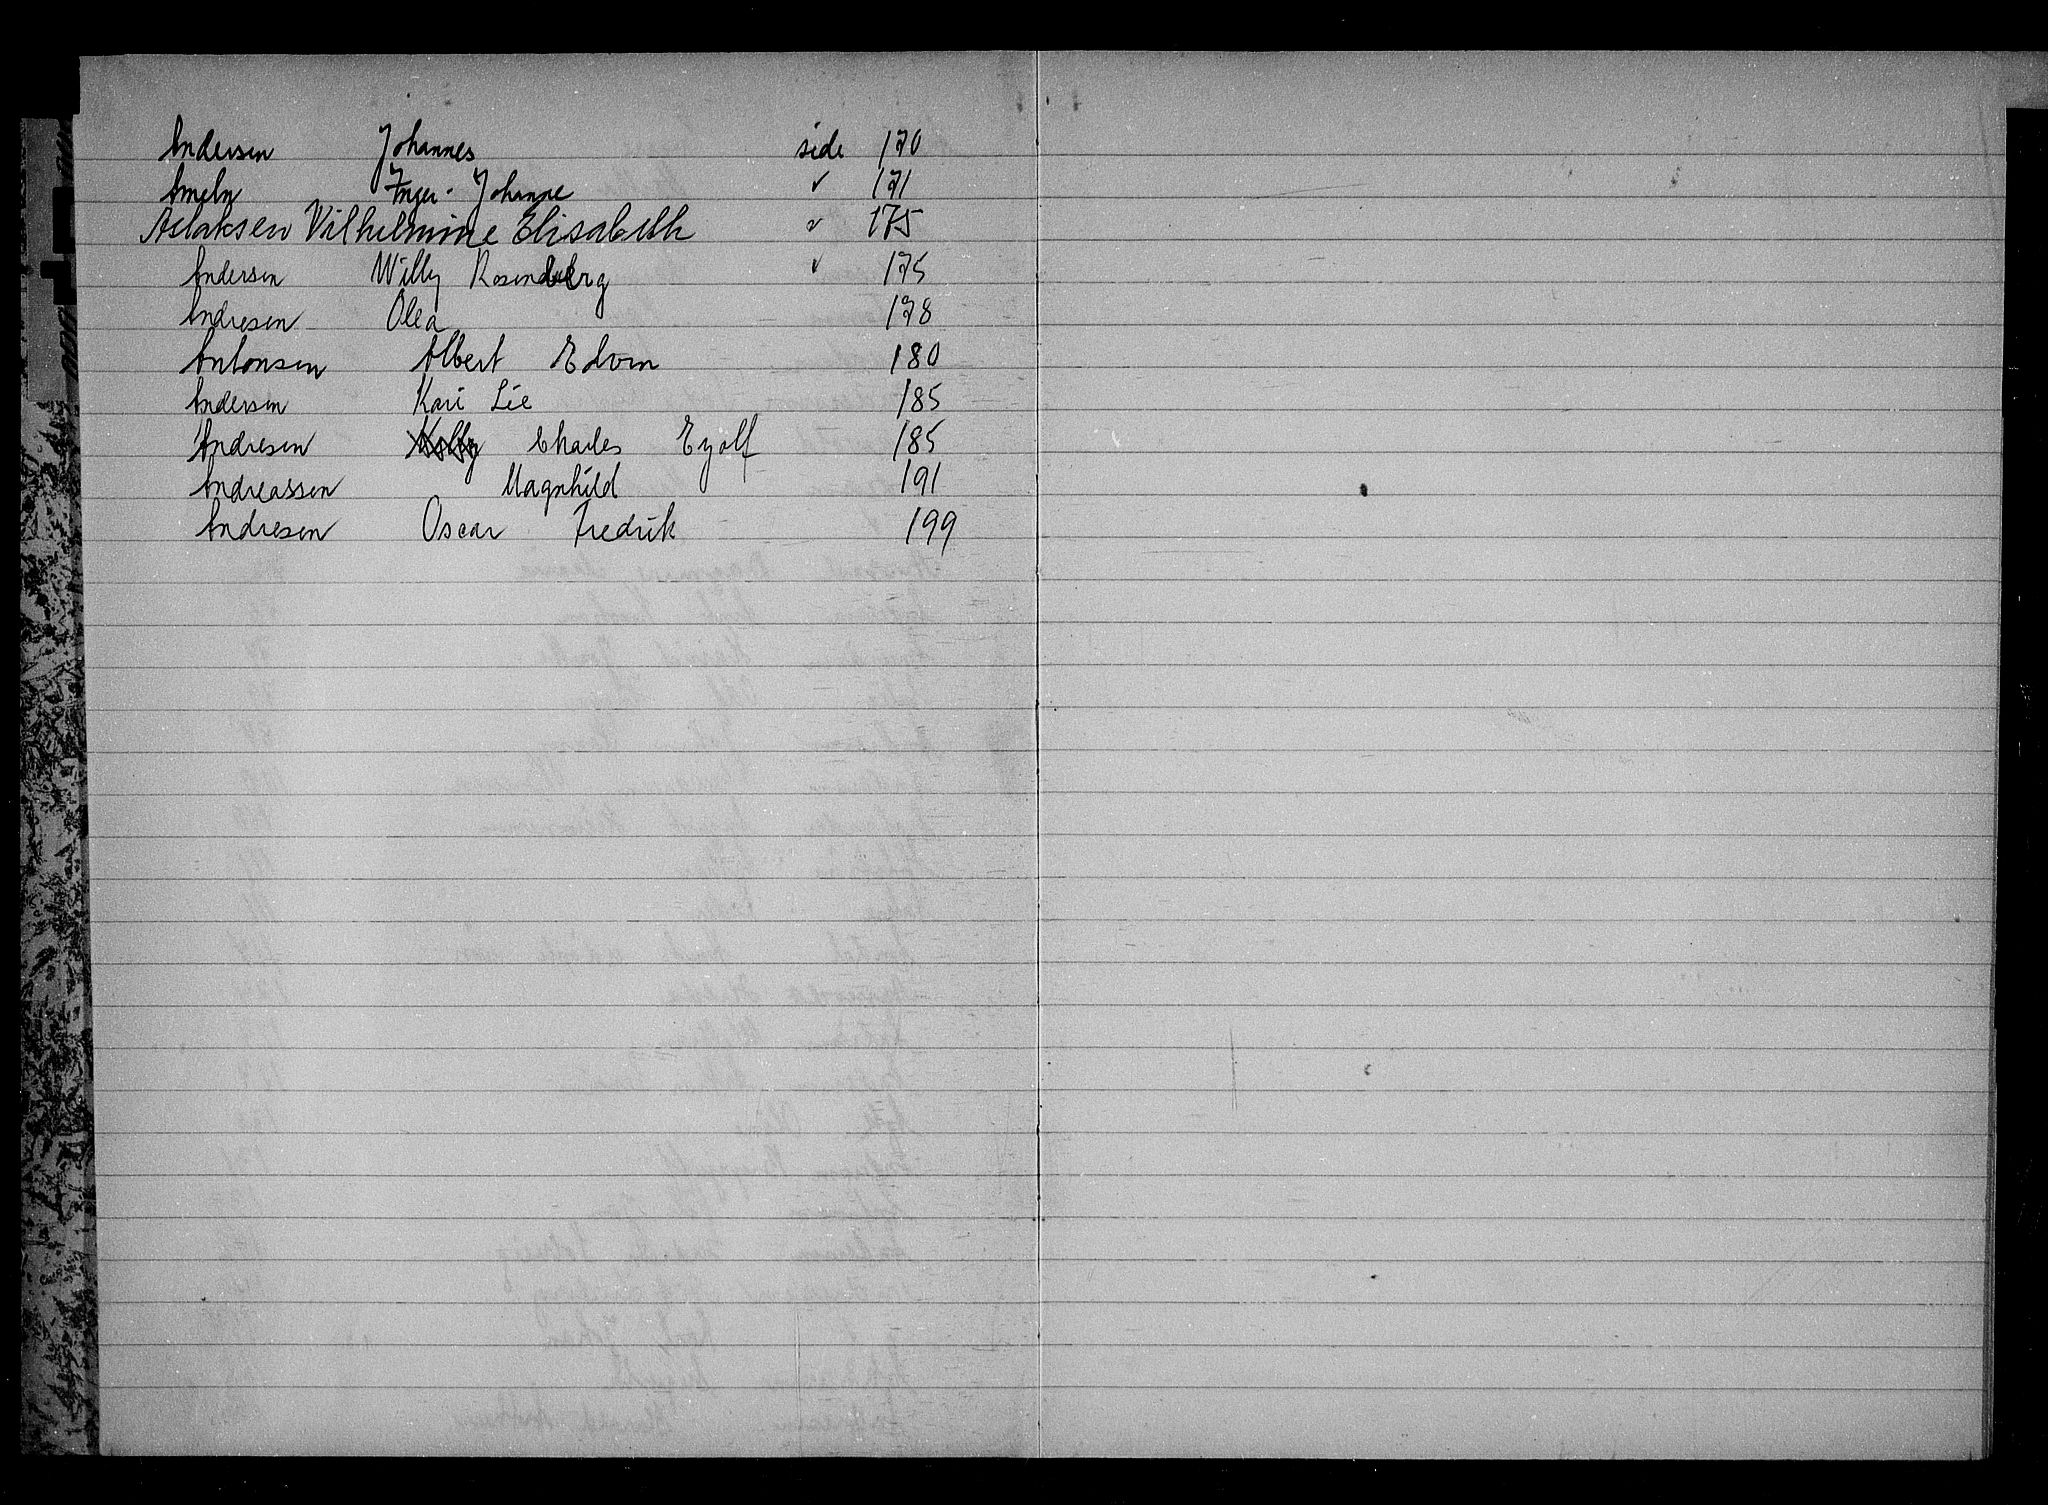 Andersen Johannes side 170
Ameln Inger-Johanne " 171
Aslaksen Vilhelmine Elisabeth " 175
Andersen Willy Rosenberg " 175
Andresen Olea 178
Antonsen Albert Edvin 180
Andersen Kari Lie 185
Andresen Charles Eyolf 185
Andreassen Magnhild 191
Andresen Oscar Fredrik 199